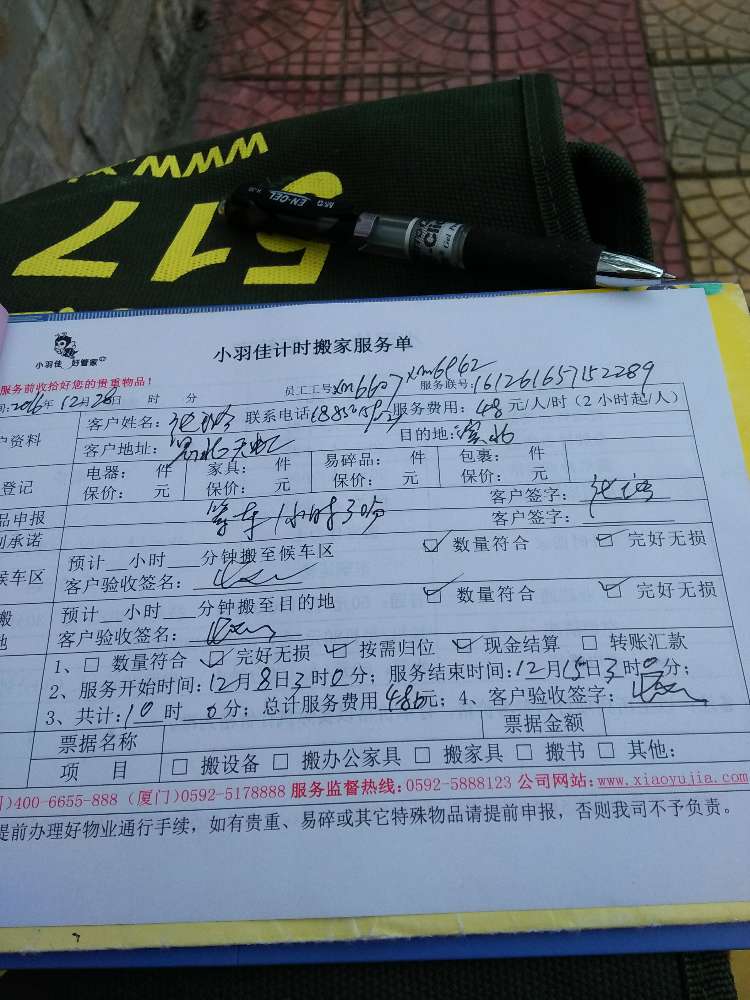 www.x
517
M&G EN-GEL
小羽佳 好管家
小羽佳计时搬家服务单
服务前收拾好您的贵重物品！
员工工号xm6607 xm6962 服务联号：161261657152289
间：2016年12月26日 时 分
户资料 客户姓名： 联系电话 服务费用：48元/人/时（2小时起/人）
客户地址： 目的地：
登记 电器： 件 家具： 件 易碎品： 件 包裹： 件
保价： 元 保价： 元 保价： 元 保价： 元
品申报 等车1小时30分 客户签字：
承诺 客户签字：
候车区 预计__小时___分钟搬至候车区 ☑ 数量符合 ☑ 完好无损
客户验收签名：
搬 预计__小时___分钟搬至目的地 ☑ 数量符合 ☑ 完好无损
地 客户验收签名：
1、□ 数量符合 ☑ 完好无损 ☑ 按需归位 ☑ 现金结算 □ 转账汇款
2、服务开始时间：12月8日3时0分；服务结束时间：12月15日3时0分；
3、共计：10时0分；总计服务费用480元；4、客户验收签字：
票据名称 票据金额
项 目 □ 搬设备 □ 搬办公家具 □ 搬家具 □ 搬书 □ 其他：
)400-6655-888（厦门)0592-5178888 服务监督热线：0592-5888123 公司网站：www.xiaoyujia.com
提前办理好物业通行手续，如有贵重、易碎或其它特殊物品请提前申报，否则我司不予负责。